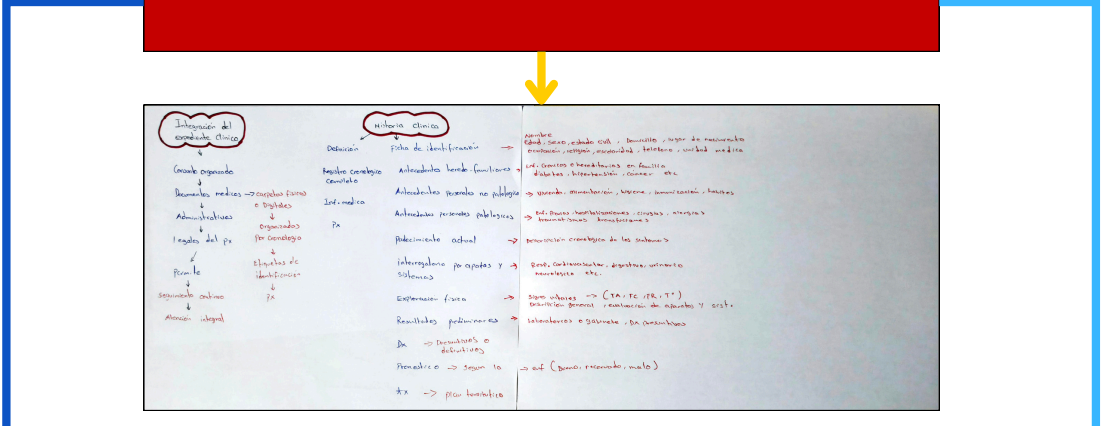 Integración del
expediente Clinico
Conjunto organizado
Documentos medicos → carpetas fisicas
o Digitales
Organizadas
Por Cronologia
Etiquetas de
identificacion
Px
Administrativos
legales del px
Permite
Seguimiento continuo
Atención integral
Historia Clinica
Definición
Registro cronologico
completo
Inf. medica
Px
Ficha de identificación →
Nombre
Edad, sexo, estado civil, Domicilio, lugar de nacimiento
ocupación, religion, escolaridad, telefono, unidad medica
Antecedentes heredo-familiares →
enf. Cronicas o hereditarias en familia
diabetes, hipertensión, cancer etc
Antecedentes personales no patologicos →
vivienda, alimentación, higiene, inmunización, habitos
Antecedentes personales patologicos →
enf. Previas, hospitalizaciones, cirugias, alergias
traumatismos transfusiones
Padecimiento actual →
Descripción cronologica de los sintomas
Interrogatorio por aparatos y →
sistemas
Resp, Cardiovascular, digestivo, urinario
neurologico etc.
Exploración fisica →
Signos vitales → (TA, FC, FR, T°)
general, evaluación de aparatos y sist.
Resultados preliminares →
Laboratorios o gabinete, Dx presuntivos
Dx → Presuntivos o
definitivos
Pronostico → Segun la → enf (Bueno, reservado, malo)
tx → plan